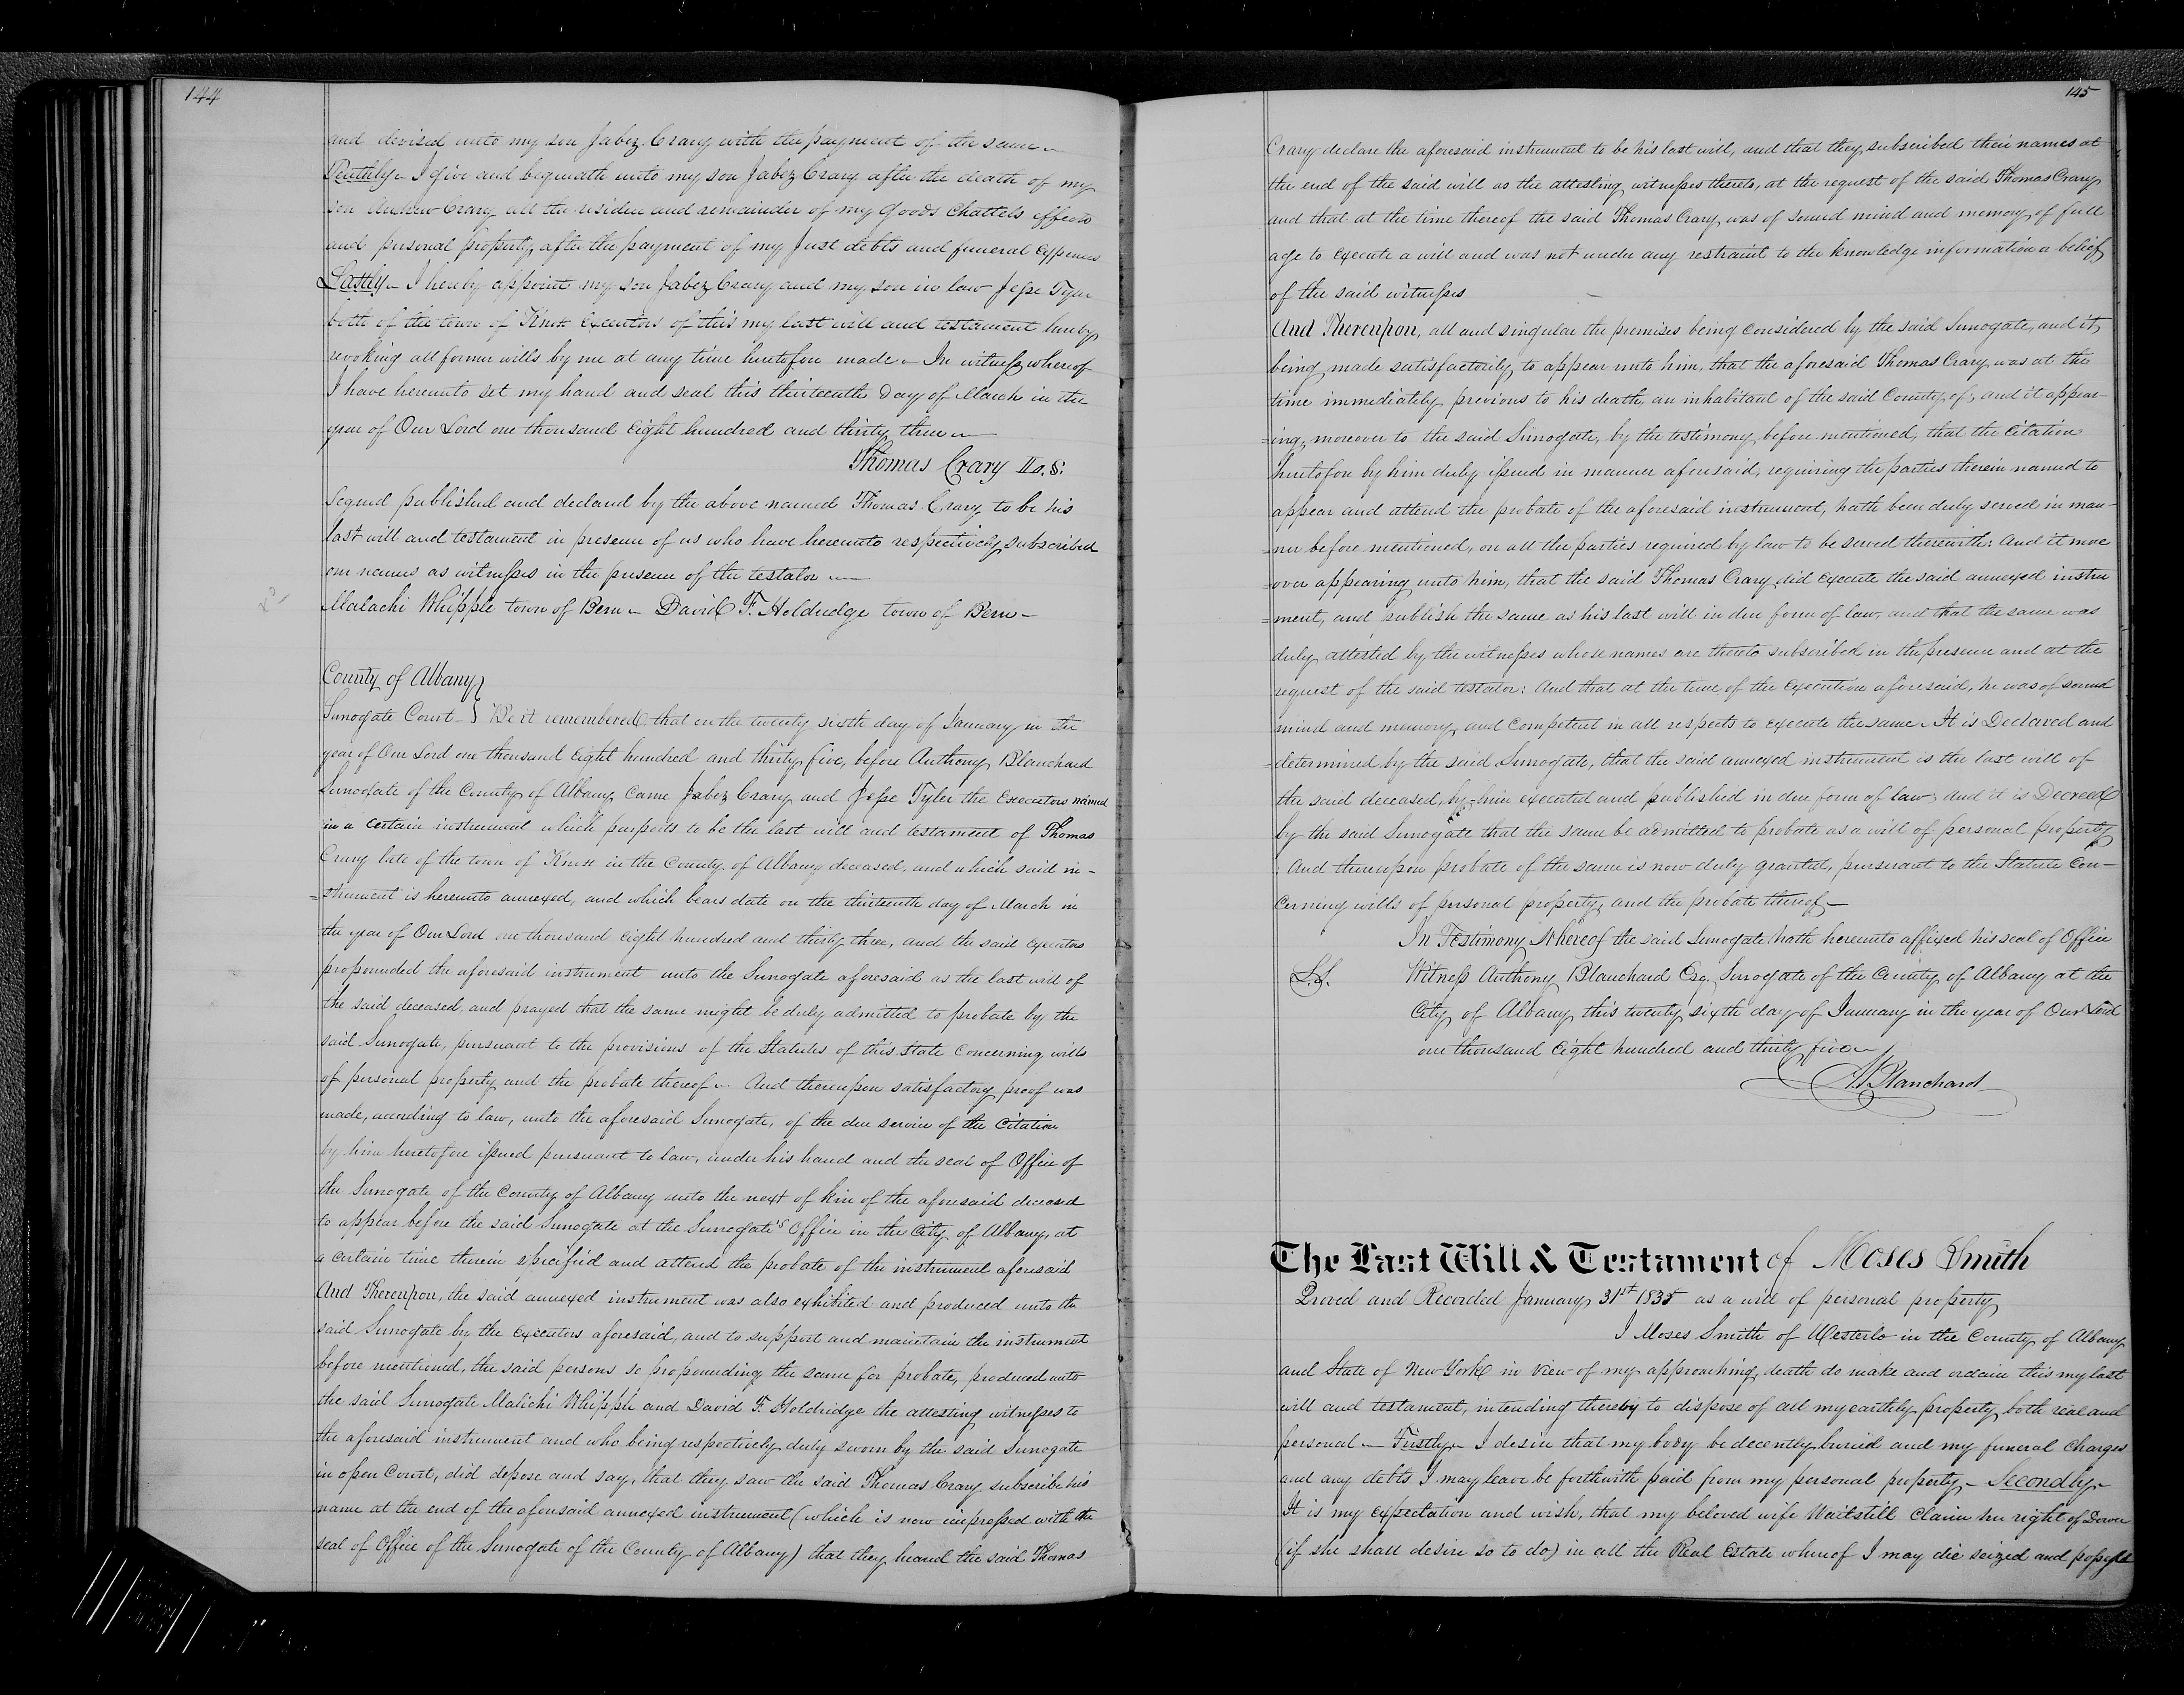 144
and devised unto my son Jabez Crary with the payment of the same
Tenthly I give and bequeath unto my son Jabez Crary after the death of my
son Andrew Crary all the residue and remainder of my Goods Chattels effects
and personal property after the payment of my Just debts and funeral expenses
Lastly I hereby appoint my son Jabez Crary and my son in law Jesse Tyler
both of the town of Knox Executors of this my last will and testament hereby
revoking all former wills by me at any time heretofore made In witness whereof
I have hereunto set my hand and seal this thirteenth Day of March in the
year of Our Lord one thousand Eight hundred and thirty three
Thomas Crary L.S.
Signed published and declared by the above named Thomas Crary to be his
last will and testament in presence of us who have hereunto respectively subscribed
our names as witnesses in the presence of the testator
Malachi Whipple town of Bern David F. Holdridge town of Bern
County of Albany
Surrogate Court } Be it remembered, that on the twenty sixth day of January in the
year of Our Lord one thousand Eight hundred and thirty five, before Anthony Blanchard
Surrogate of the County of Albany Came Jabez Crary and Jesse Tyler the Executors named
in a certain instrument which purports to be the last will and testament of Thomas
Crary late of the town of Knox in the County of Albany deceased, and which said in-
=strument is hereunto annexed, and which bears date on the thirteenth day of March in
the year of Our Lord one thousand eight hundred and thirty three, and the said executors
propounded the aforesaid instrument unto the Surrogate aforesaid as the last will of
the said deceased, and prayed that the same might be duly admitted to probate by the
said Surrogate, pursuant to the provisions of the Statutes of this State Concerning wills
of personal property and the probate thereof. And thereupon satisfactory proof was
made, according to law, unto the aforesaid Surrogate, of the due service of the Citation
by him heretofore issued pursuant to law, under his hand and the seal of Office of
the Surrogate of the County of Albany unto the next of kin of the aforesaid deceased
to appear before the said Surrogate at the Surrogate's Office in the City of Albany, at
a certain time therein specified and attend the probate of the instrument aforesaid
And Thereupon, the said annexed instrument was also exhibited and produced unto the
said Surrogate by the Executors aforesaid, and to support and maintain the instrument
before mentioned, the said persons so propounding the same for probate, produced unto
the said Surrogate Malichi Whipple and David F. Holdridge the attesting witnesses to
the aforesaid instrument and who being respectively duly sworn by the said Surrogate
in open Court, did depose and say, that they saw the said Thomas Crary subscribe his
name at the end of the aforesaid annexed instrument (which is now impressed with the
seal of Office of the Surrogate of the County of Albany) that they heard the said Thomas
145
Crary declare the aforesaid instrument to be his last will, and that they subscribed their names at
the end of the said will as the attesting witnesses thereto, at the request of the said Thomas Crary
and that at the time thereof the said Thomas Crary was of sound mind and memory of full
age to execute a will and was not under any restraint to the knowledge information a belief
of the said witnesses
And Thereupon, all and singular the premises being considered by the said Surrogate, and it
being made satisfactorily to appear unto him, that the aforesaid Thomas Crary was at the
time immediately previous to his death, an inhabitant of the said County of, and it appear-
=ing moreover to the said Surrogate, by the testimony before mentioned, that the Citation
heretofore by him duly issued in manner aforesaid, requiring the parties therein named to
appear and attend the probate of the aforesaid instrument, hath been duly served in man-
=ner before mentioned, on all the parties required by law to be served therewith: And it more
=over appearing unto him, that the said Thomas Crary did execute the said annexed instru
=ment, and publish the same as his last will in due form of law, and that the same was
duly attested by the witnesses whose names are thereto subscribed in the presence and at the
request of the said testator: And that at the time of the Execution aforesaid, he was of sound
mind and memory, and Competent in all respects to execute the same. It is Declared and
=determined by the said Surrogate, that the said annexed instrument is the last will of
the said deceased, by him executed and published in due form of law; And it is Decreed
by the said Surrogate that the same be admitted to probate as a will of personal property
And thereupon probate of the same is now duly granted, pursuant to the Statute Con-
cerning wills of personal property, and the probate thereof
In Testimony Whereof the said Surrogate hath hereunto affixed his seal of Office
L.S. Witness Anthony Blanchard Esq. Surrogate of the County of Albany at the
City of Albany this twenty sixth day of January in the year of Our Lord
one thousand Eight hundred and thirty five
A. Blanchard
The Last Will & Testament of Moses Smith
Proved and Recorded January 31st 1835 as a will of personal property
I Moses Smith of Westerlo in the County of Albany
and State of New York in view of my approaching death do make and ordain this my last
will and testament, intending thereby to dispose of all my earthly property both real and
personal Firstly I desire that my body be decently buried and my funeral Charges
and any debts I may leave be forthwith paid from my personal property Secondly
It is my expectation and wish, that my beloved wife Waitstill Claim her right of Dower
(if she shall desire so to do) in all the Real Estate whereof I may die seized and possessed